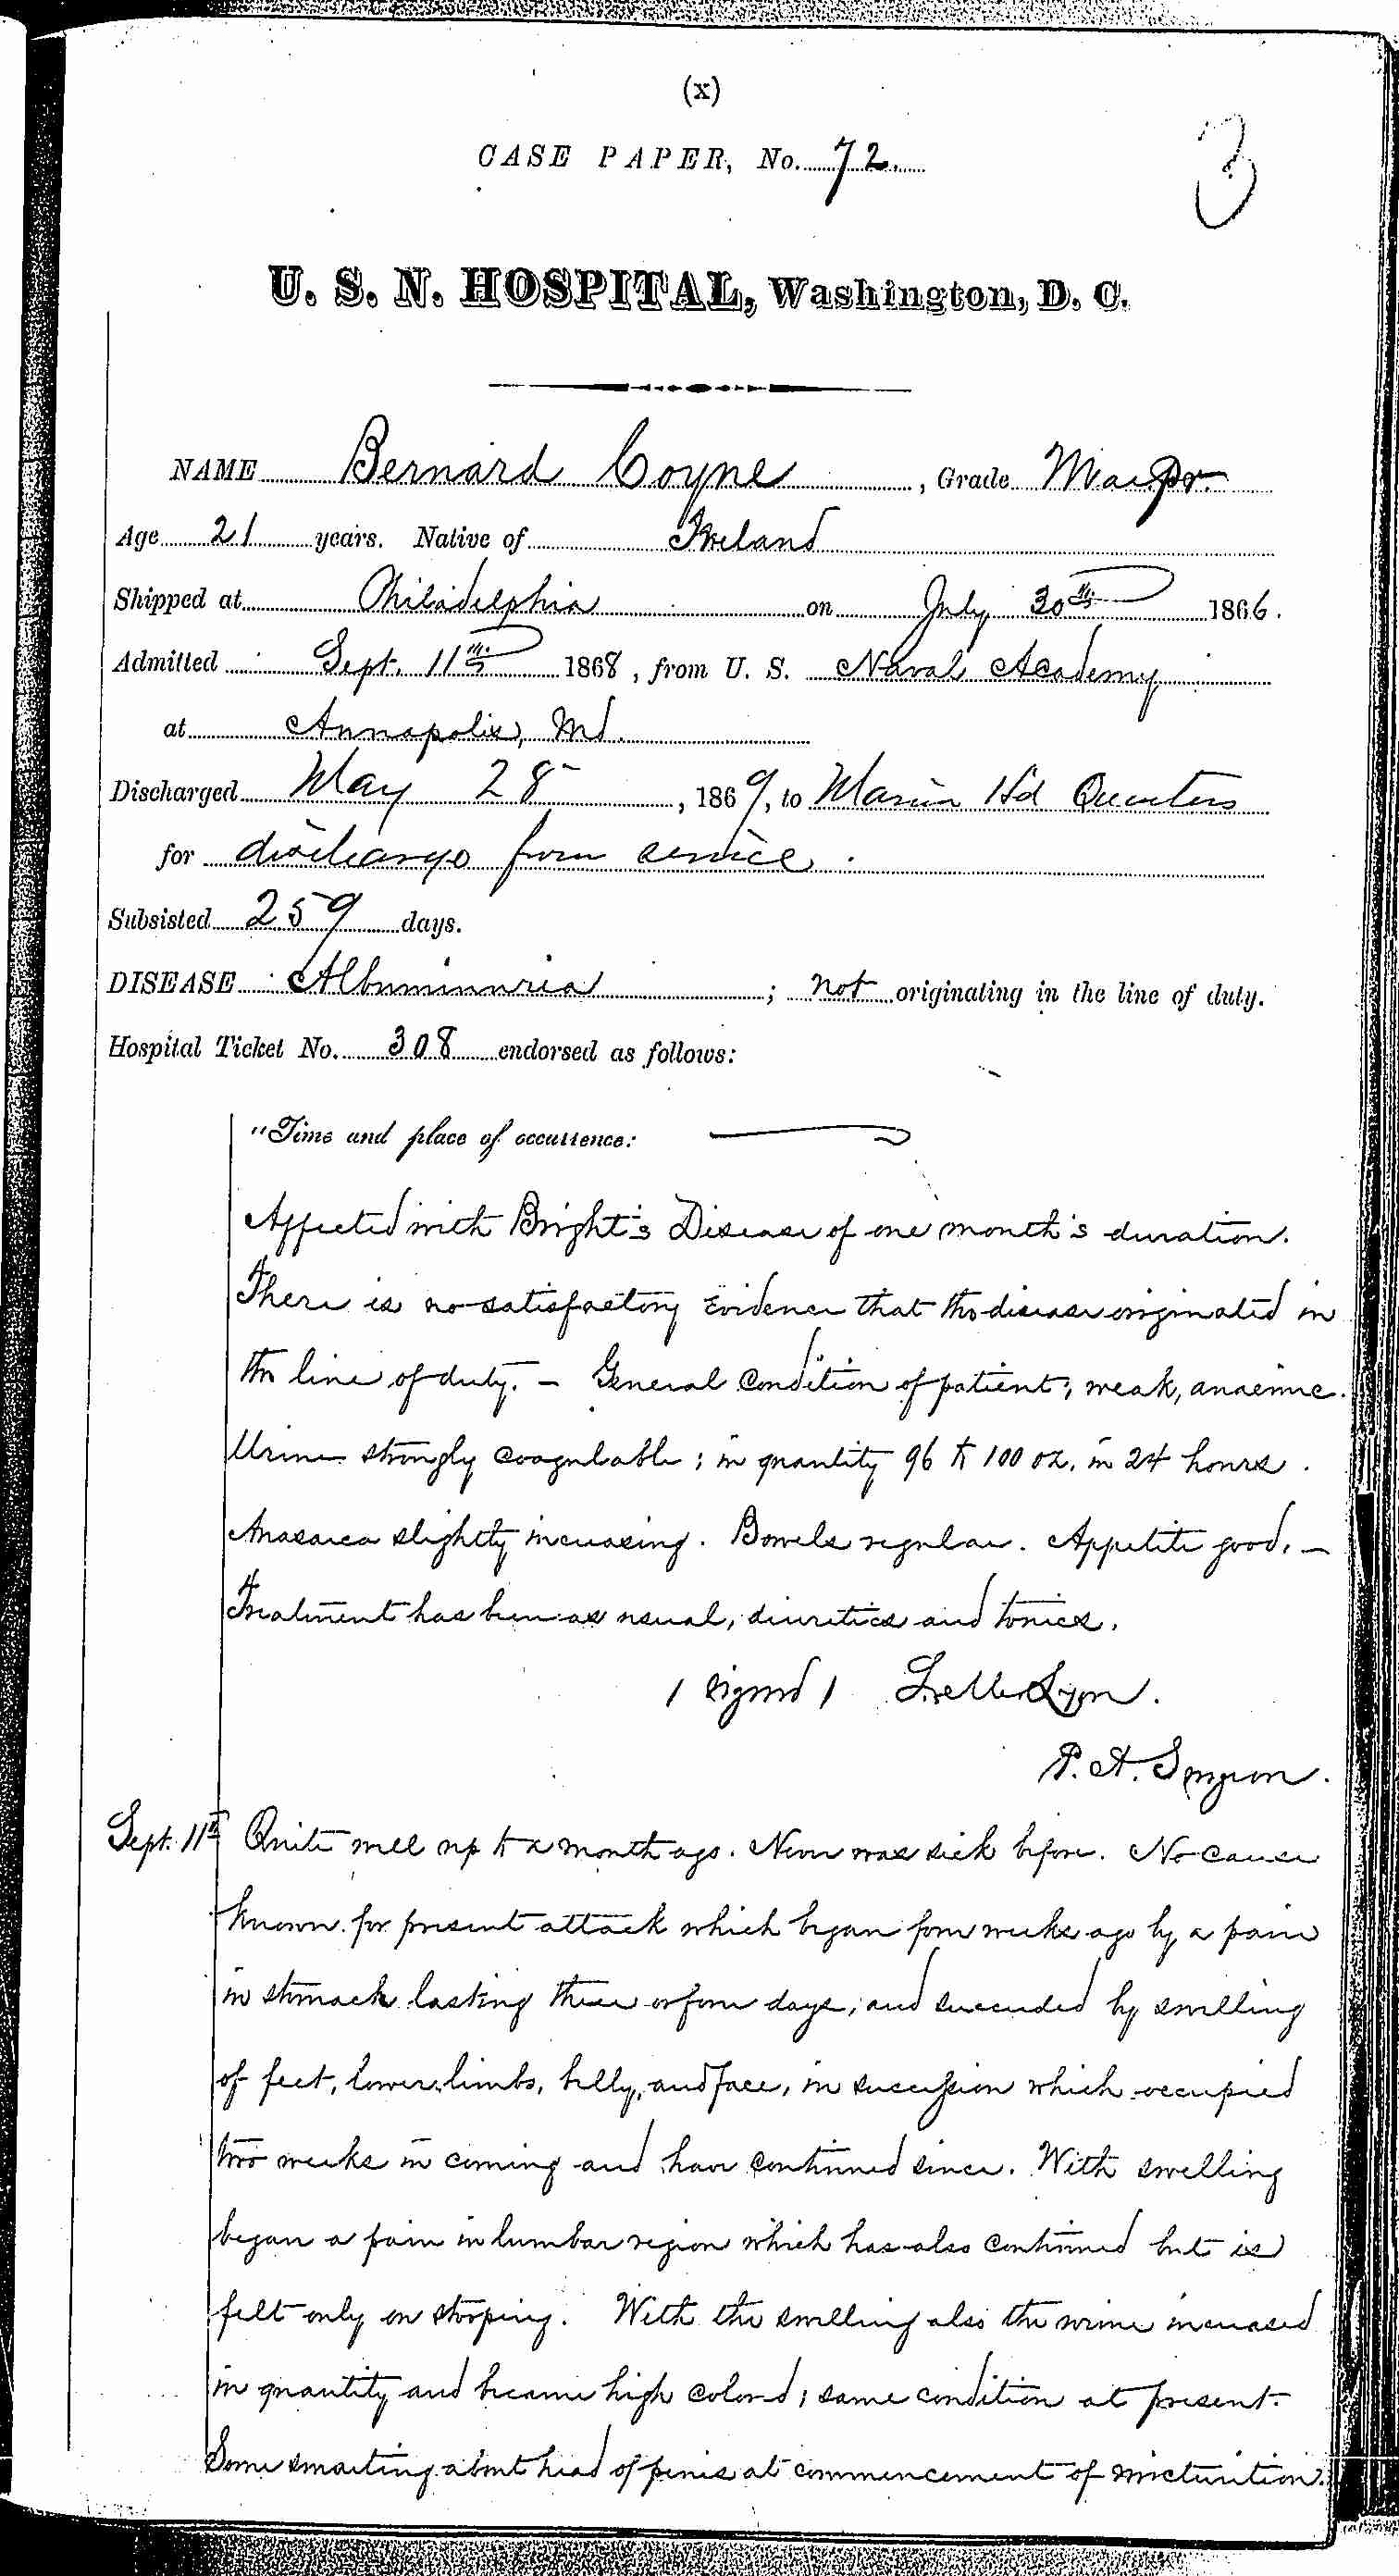 (x)
3
CASE PAPER, No. 72.
U. S. N. HOSPITAL, Washington, D. C.
NAME Bernard Coyne, Grade Mar. Pr.
Age 21 years. Native of Ireland
Shipped at Philadelphia on July 30th 1866.
Admitted Sept. 11th 1868, from U. S. Naval Academy
at Annapolis, Md.
Discharged May 28, 1869, to Marine Hd Quarters
for discharge from service.
Subsisted 259 days.
DISEASE Albuminuria; not originating in the line of duty.
Hospital Ticket No. 308 endorsed as follows:
"Time and place of occurrence:
Affected with Bright's Disease of one month's duration.
There is no satisfactory evidence that the disease originated in
the line of duty. - General condition of patient; weak, anaemic.
Urine strongly coagulable; in quantity 96 to 100 oz. in 24 hours.
Anasarca slightly increasing. Bowels regular. Appetite good. -
Treatment has been as usual, diuretics and tonics.
/ signed /
P. A. Surgeon.
Sept. 11th Quite well up to a month ago. Never was sick before. No cause
known for present attack which began four weeks ago by a pain
in stomach lasting three or four days; and succeeded by swelling
of feet, lower limbs, belly, and face, in succession which occupied
two weeks in coming and have continued since. With swelling
began a pain in lumbar region which has also continued but is
felt only on stooping. With the swelling also the urine increased
in quantity and became high colored; same condition at present.
Some smarting about head of penis at commencement of micturition.